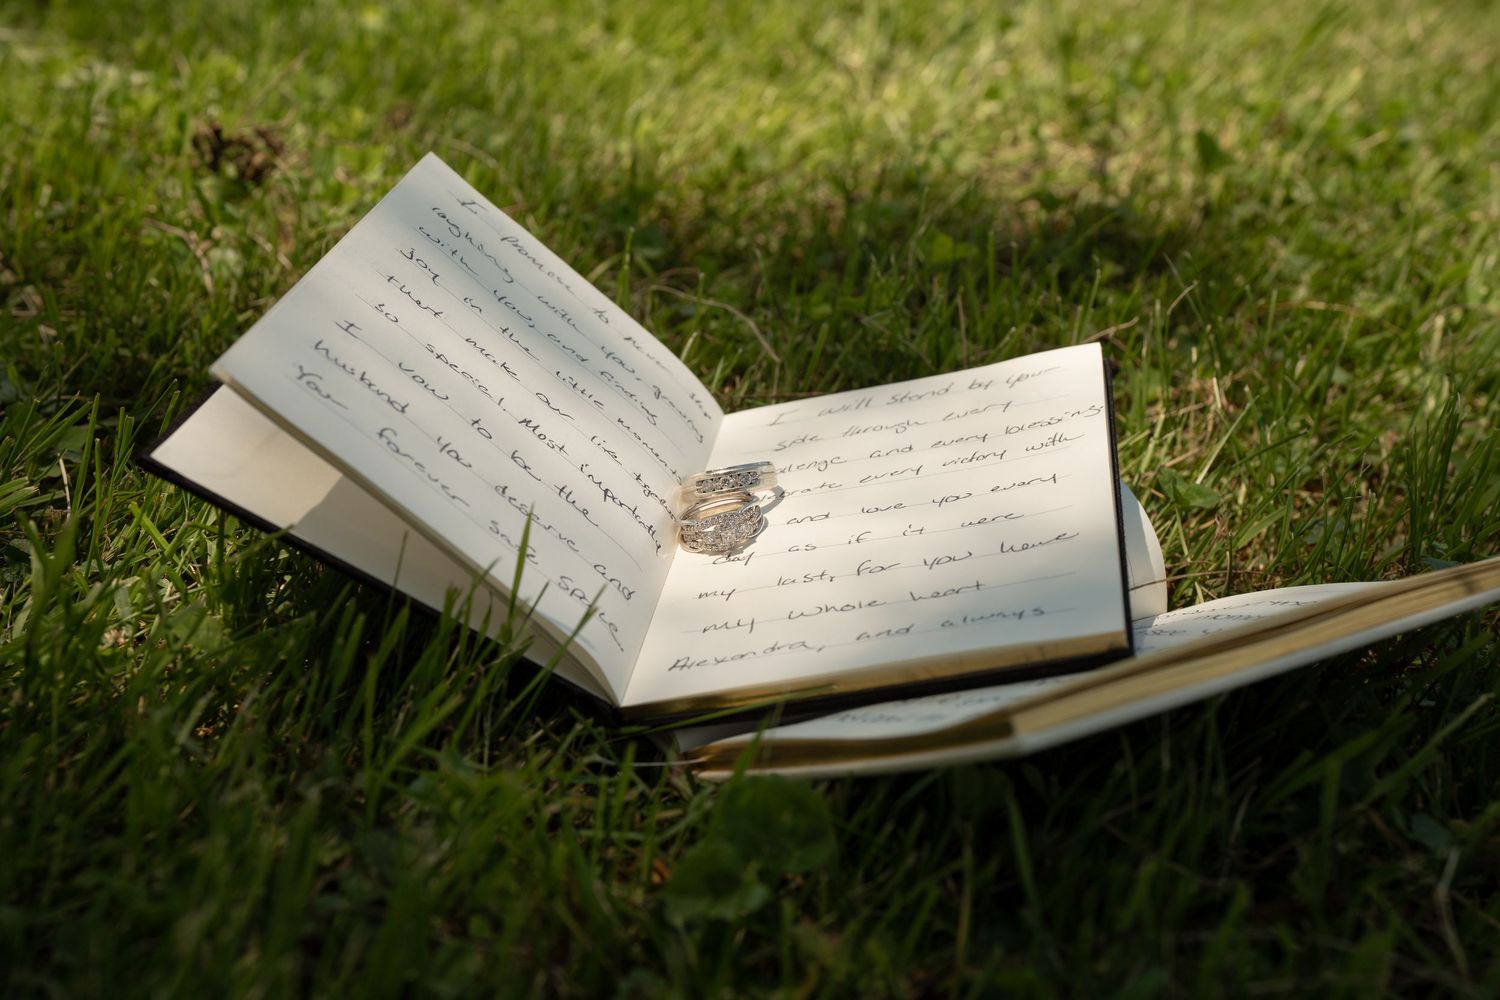 I promise to never stop
laughing with you, growing
with you, and finding
joy in the little moments
that make our life together
so special. Most importantly
I vow to be the
husband you deserve and
your forever safe space.
I will stand by your
side through every
and every blessing,
every victory with
and love you every
day as if it were
my last, for you have
my whole heart
Alexandra, and always